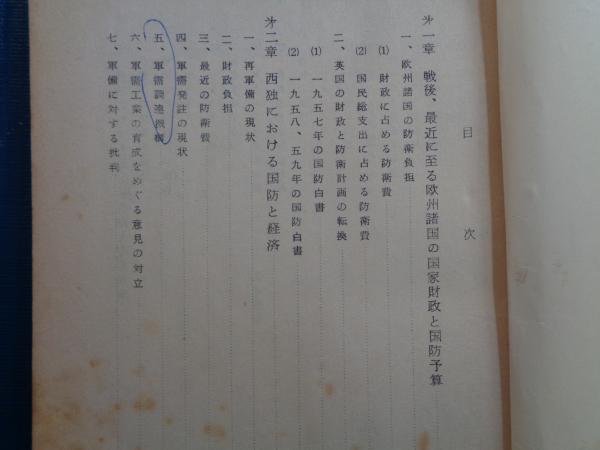 目次
才一章 戦後、最近に至る欧州諸国の国家財政と国防予算
一、欧州諸国の防衛負担
(1) 財政に占める防衛費
(2) 国民総支出に占める防衛費
二、英国の財政と防衛計画の転換
(1) 一九五七年の国防白書
(2) 一九五八、五九年の国防白書
才二章 西独における国防と経済
一、再軍備の現状
二、財政負担
三、最近の防衛費
四、軍需発註の現状
五、軍需調達機構
六、軍需工業の育成をめぐる意見の対立
七、軍備に対する批判